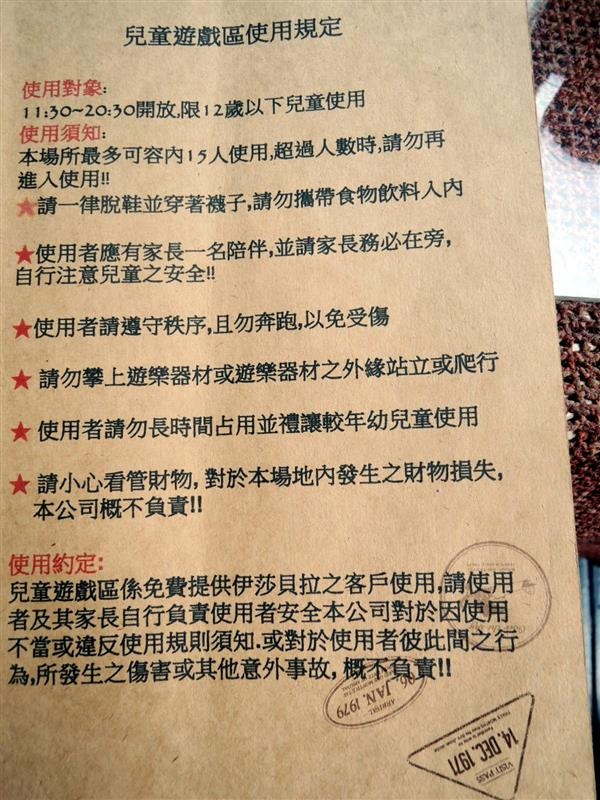 兒童遊戲區使用規定
使用對象:
11:30~20:30開放,限12歲以下兒童使用
使用須知:
本場所最多可容內15人使用,超過人數時,請勿再
進入使用!!
★請一律脫鞋並穿著襪子,請勿攜帶食物飲料入內
★使用者應有家長一名陪伴,並請家長務必在旁,
自行注意兒童之安全!!
★使用者請遵守秩序,且勿奔跑,以免受傷
★ 請勿攀上遊樂器材或遊樂器材之外緣站立或爬行
★ 使用者請勿長時間占用並禮讓較年幼兒童使用
★ 請小心看管財物, 對於本場地內發生之財物損失,
本公司概不負責!!
使用約定:
兒童遊戲區係免費提供伊莎貝拉之客戶使用,請使用
者及其家長自行負責使用者安全本公司對於因使用
不當或違反使用規則須知.或對於使用者彼此間之行
為,所發生之傷害或其他意外事故, 概不負責!!
06. JAN. 1979
ARRIVAL
14. DEC. 1971
VISIT PASS